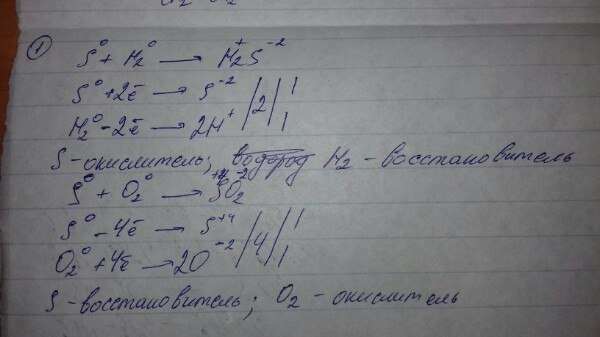 ① S⁰ + H₂⁰ → H₂⁺S⁻²
S⁰ + 2ē → S⁻² /2/ 1
H₂⁰ - 2ē → 2H⁺ / / 1
S - окислитель; водород H₂ - восстановитель
S⁰ + O₂⁰ → S⁺⁴O₂⁻²
S⁰ - 4ē → S⁺⁴ /4/ 1
O₂⁰ + 4ē → 2O⁻² / / 1
S - восстановитель; O₂ - окислитель